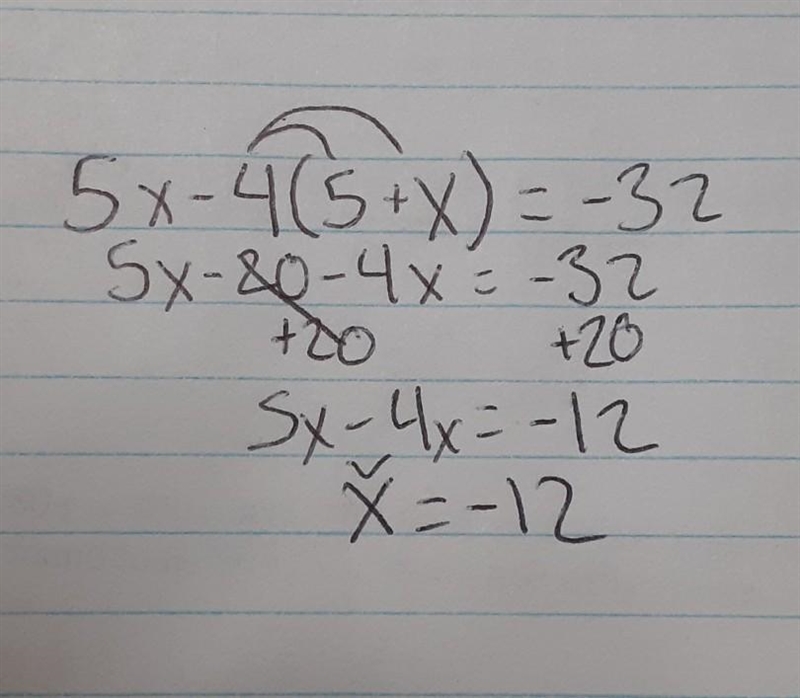 5x-4(5+x)=-32
5x-20-4x=-32
+20 +20
5x-4x=-12
x=-12